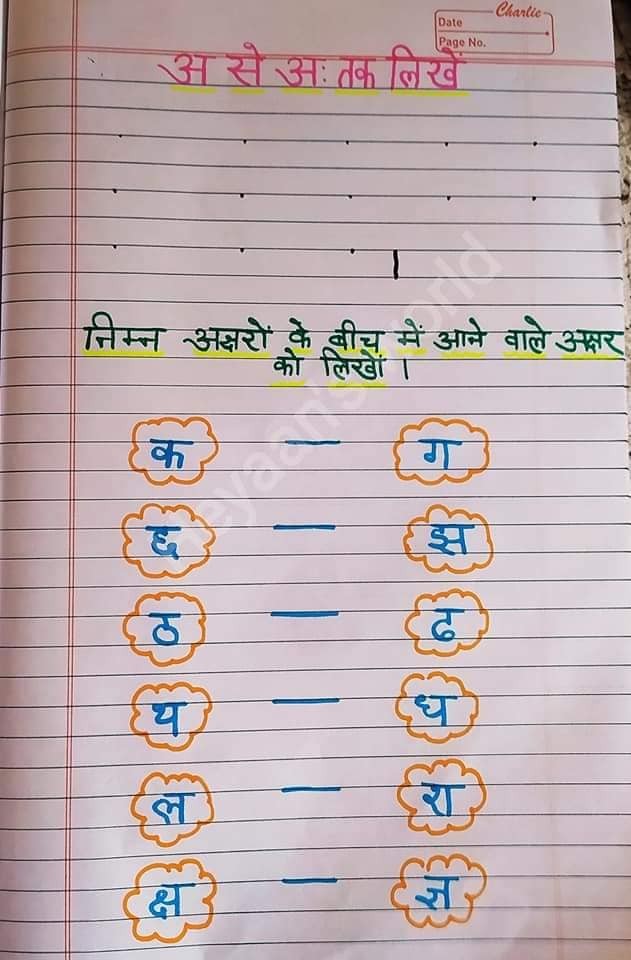 Charlie
Date
Page No.
अ से अः तक लिखें
निम्न अक्षरों के बीच में आने वाले अक्षर
को लिखों ।
क — ग
छ — झ
ठ — ढ
य — ध
ल — श
क्ष — ज्ञ
world